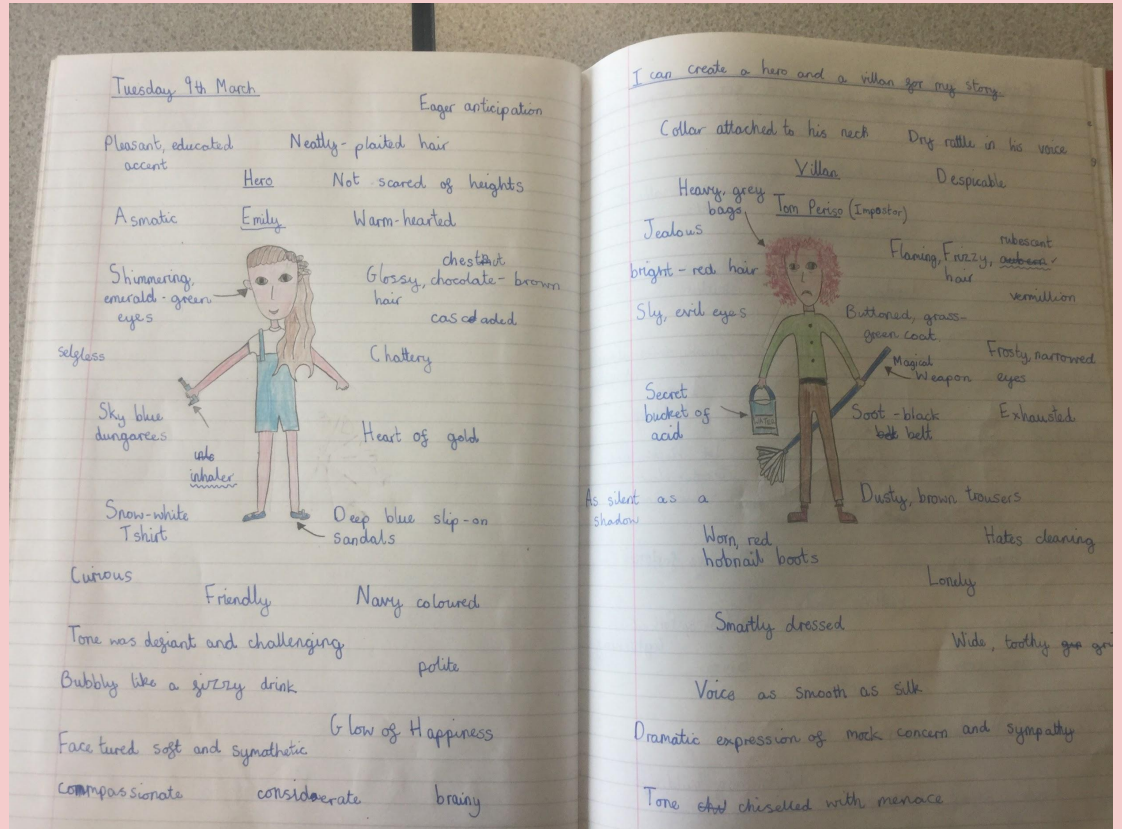 Tuesday 9th March
Eager anticipation
Pleasant, educated
accent
Neatly-plaited hair
Hero
Not scared of heights
Asmatic
Emily
Warm-hearted
Shimmering,
emerald-green
eyes
chestnut
Glossy, chocolate-brown
hair
cascaded
selfless
Chattery
Sky blue
dungarees
inhaler
Heart of gold
Snow-white
Tshirt
Deep blue slip-on
sandals
Curious
Friendly
Navy coloured
Tone was defiant and challenging
polite
Bubbly like a fizzy drink
Glow of Happiness
Face tured soft and symothetic
commpassionate
considerate
brainy
I can create a hero and a villan for my story.
Collar attached to his neck
Dry rattle in his voice
Villan
Despicable
Heavy, grey
bags
Tom Periso (Impostor)
Jealous
bright-red hair
Flaming, Frizzy,
rubescent
auburn
hair
vermillion
Sly, evil eyes
Buttoned, grass-
green coat
Magical
Weapon
Frosty, narrowed
eyes
Secret
bucket of
acid
WATER
Soot-black
belt
Exhausted
As silent as a
shadow
Dusty, brown trousers
Worn, red
hobnail boots
Hates cleaning
Lonely
Smartly dressed
Wide, toothy
Voice as smooth as silk
Dramatic expression of mock concern and sympathy
Tone chiselled with menace